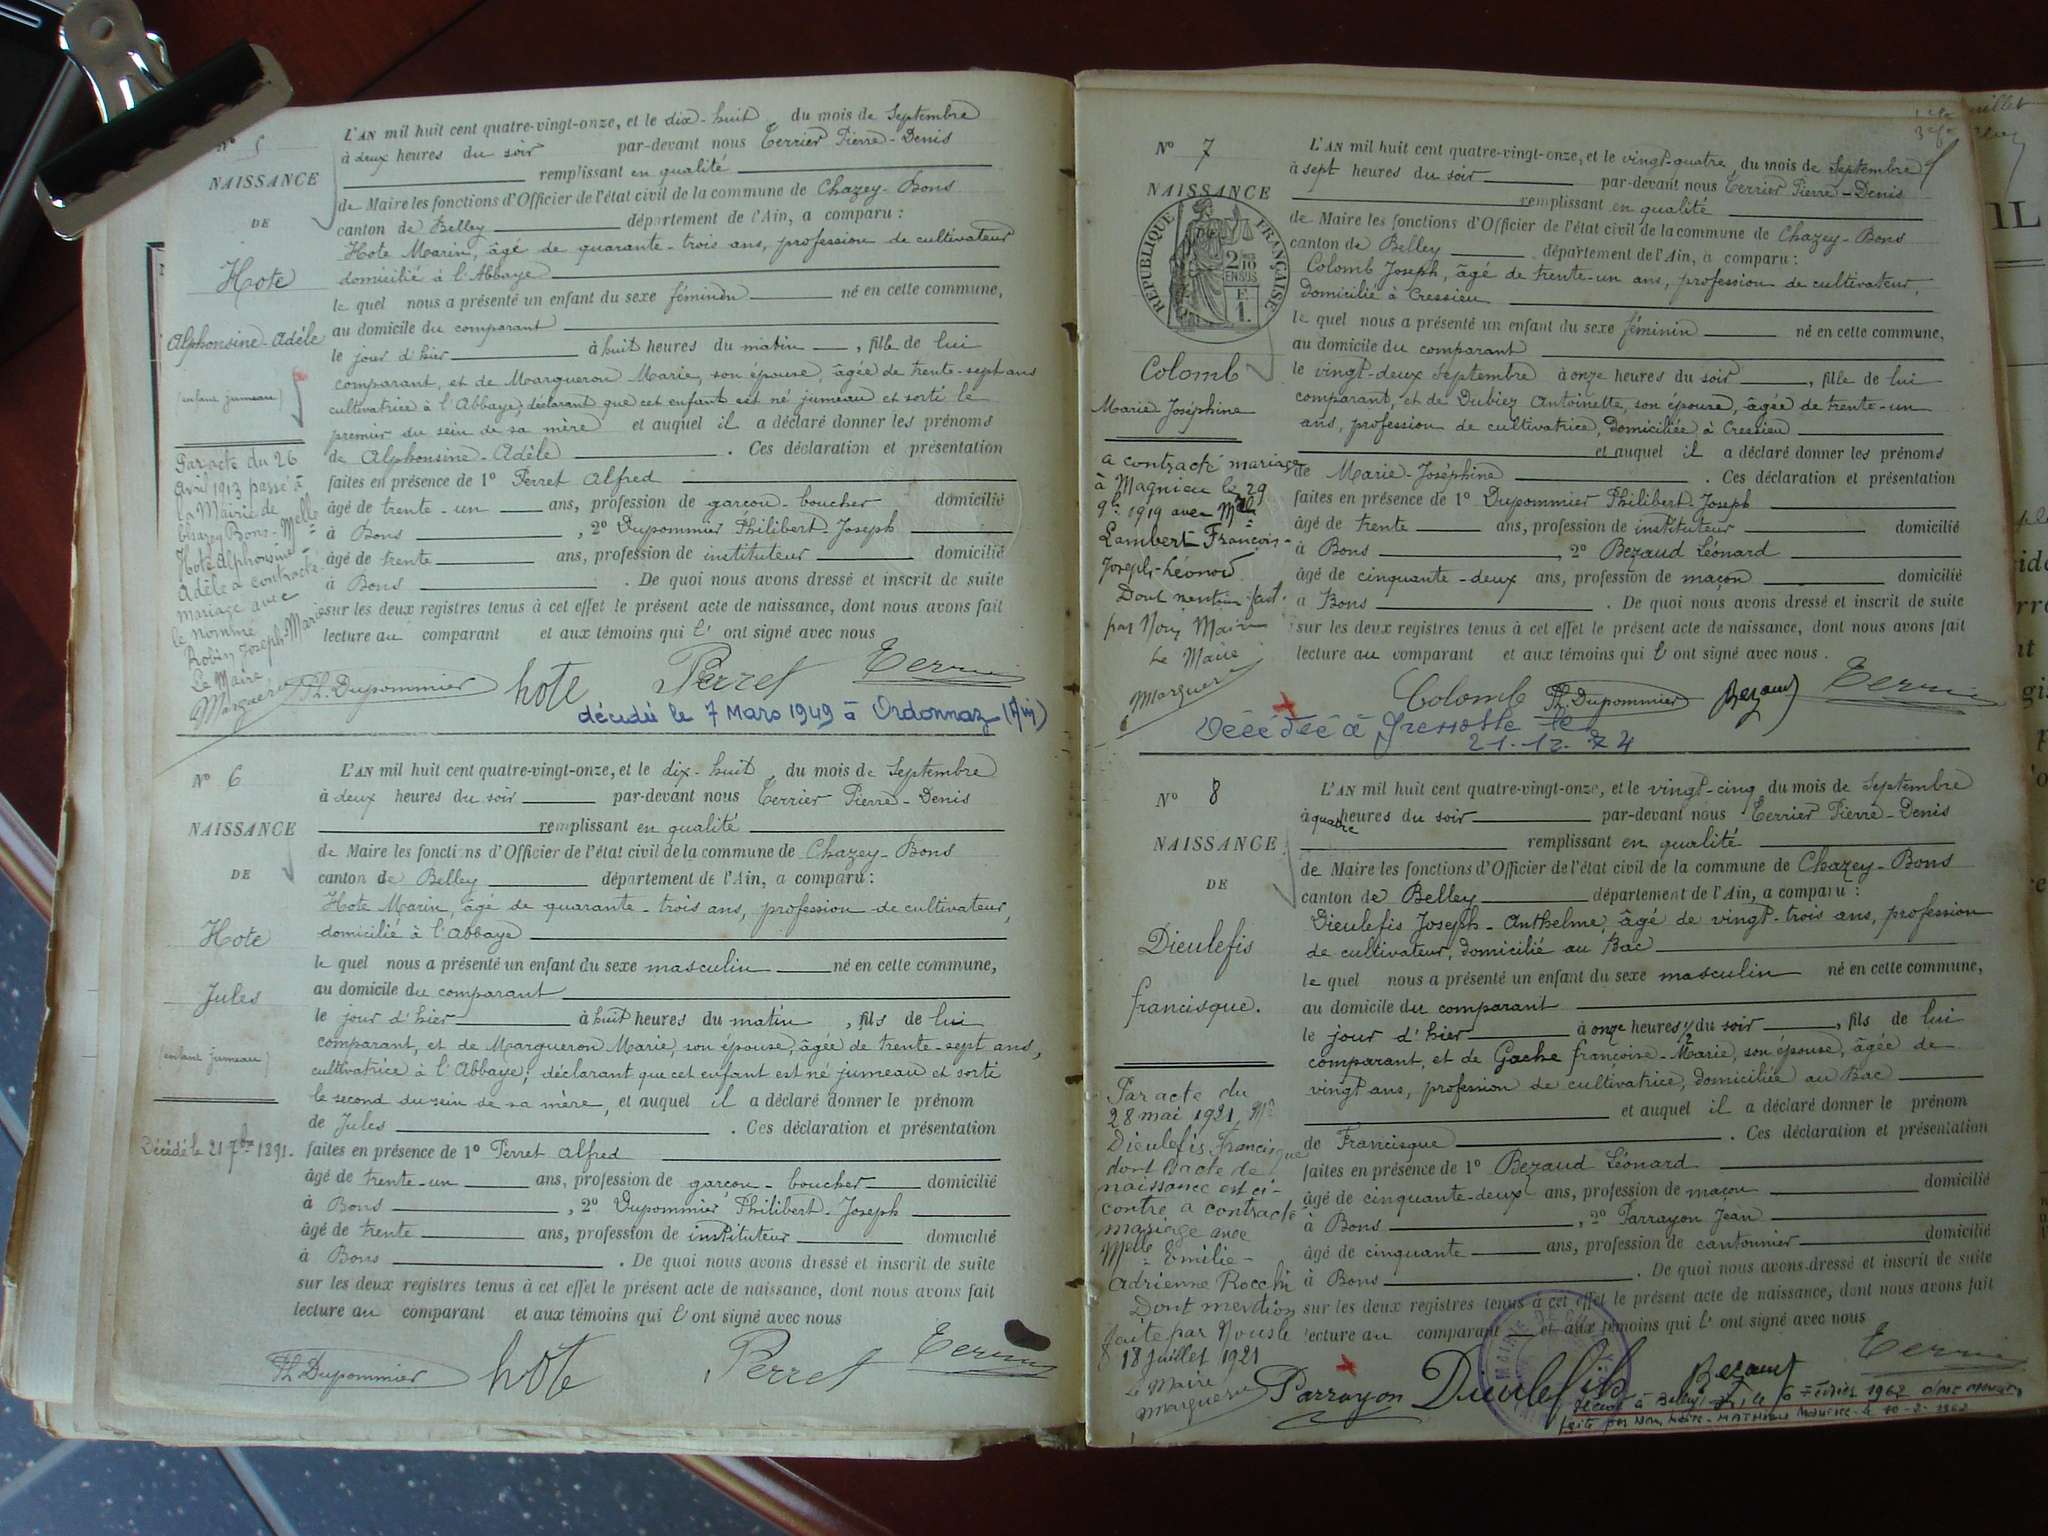 N° 5
NAISSANCE
DE
Hote
Alphonsine-Adèle
(enfant jumeau)
Par acte du 26
avril 1913 passé à
la Mairie de
Chazey Bons Melle
Hote Alphonsine
Adèle a contracté
mariage avec
le nommé
Robin Joseph Marie
Le Maire
L'AN mil huit cent quatre-vingt-onze, et le dix-huit du mois de Septembre
à deux heures du soir par-devant nous Terrier Pierre-Denis
remplissant en qualité
de Maire les fonctions d'Officier de l'état civil de la commune de Chazey-Bons
canton de Belley département de l'Ain, a comparu :
Hote Marin, âgé de quarante-trois ans, profession de cultivateur
domicilié à l'Abbaye
le quel nous a présenté un enfant du sexe féminin né en cette commune,
au domicile du comparant
le jour d'hier à huit heures du matin, fille de lui
comparant, et de Margueron Marie, son épouse, âgée de trente-sept ans
cultivatrice à l'Abbaye, déclarant que cet enfant est né jumeau et sorti le
premier du sein de sa mère et auquel il a déclaré donner les prénoms
de Alphonsine-Adèle. Ces déclaration et présentation
faites en présence de 1° Perret Alfred
âgé de trente-un ans, profession de garçon-boucher domicilié
à Bons, 2° Dupommier Philibert-Joseph
âgé de trente ans, profession de instituteur domicilié
à Bons. De quoi nous avons dressé et inscrit de suite
sur les deux registres tenus à cet effet le présent acte de naissance, dont nous avons fait
lecture au comparant et aux témoins qui l'ont signé avec nous
Ph. Dupommier hote Perret Terrier
décédée le 7 Mars 1949 à Ordonnaz (Ain)
N° 6
NAISSANCE
DE
Hote
Jules
(enfant jumeau)
Décédé le 21 7bre 1891.
L'AN mil huit cent quatre-vingt-onze, et le dix-huit du mois de Septembre
à deux heures du soir par-devant nous Terrier Pierre-Denis
remplissant en qualité
de Maire les fonctions d'Officier de l'état civil de la commune de Chazey-Bons
canton de Belley département de l'Ain, a comparu :
Hote Marin, âgé de quarante-trois ans, profession de cultivateur,
domicilié à l'Abbaye
le quel nous a présenté un enfant du sexe masculin né en cette commune,
au domicile du comparant
le jour d'hier à huit heures du matin, fils de lui
comparant, et de Margueron Marie, son épouse, âgée de trente-sept ans,
cultivatrice à l'Abbaye, déclarant que cet enfant est né jumeau et sorti
le second du sein de sa mère, et auquel il a déclaré donner le prénom
de Jules. Ces déclaration et présentation
faites en présence de 1° Perret Alfred
âgé de trente-un ans, profession de garçon-boucher domicilié
à Bons, 2° Dupommier Philibert-Joseph
âgé de trente ans, profession de instituteur domicilié
à Bons. De quoi nous avons dressé et inscrit de suite
sur les deux registres tenus à cet effet le présent acte de naissance, dont nous avons fait
lecture au comparant et aux témoins qui l'ont signé avec nous
Ph. Dupommier hote Perret Terrier
N° 7
NAISSANCE
RÉPUBLIQUE FRANÇAISE
Colomb
Marie Joséphine
a contracté mariage
à Magnieu le 29
9bre 1919 avec
Lambert François-
Joseph-Léonard
Dont mention fait
par Nous Maire
Le Maire
L'AN mil huit cent quatre-vingt-onze, et le vingt-quatre du mois de Septembre
à sept heures du soir par-devant nous Terrier Pierre-Denis
remplissant en qualité
de Maire les fonctions d'Officier de l'état civil de la commune de Chazey-Bons
canton de Belley département de l'Ain, a comparu :
Colomb Joseph, âgé de trente-un ans, profession de cultivateur,
domicilié à Cressieu
le quel nous a présenté un enfant du sexe féminin né en cette commune,
au domicile du comparant
le vingt-deux Septembre à onze heures du soir, fille de lui
comparant, et de Dubiez Antoinette, son épouse, âgée de trente-un
ans, profession de cultivatrice, domiciliée à Cressieu
et auquel il a déclaré donner les prénoms
de Marie-Joséphine. Ces déclaration et présentation
faites en présence de 1° Dupommier Philibert-Joseph
âgé de trente ans, profession de instituteur domicilié
à Bons, 2° Bezaud Léonard
âgé de cinquante-deux ans, profession de maçon domicilié
à Bons. De quoi nous avons dressé et inscrit de suite
sur les deux registres tenus à cet effet le présent acte de naissance, dont nous avons fait
lecture au comparant et aux témoins qui l'ont signé avec nous.
Colomb Ph. Dupommier Bezaud Terrier
Décédée à Grenoble le
21.12.74
N° 8
NAISSANCE
DE
Dieulefis
francisque.
Par acte du
28 mai 1921, Mr
Dieulefis Francisque
dont l'acte de
naissance est ci-
contre a contracté
mariage avec
Melle Emélie-
Adrienne Rocchi
Dont mention
faite par Nous le
18 juillet 1921
Le Maire
L'AN mil huit cent quatre-vingt-onze, et le vingt-cinq du mois de Septembre
à quatre heures du soir par-devant nous Terrier Pierre-Denis
remplissant en qualité
de Maire les fonctions d'Officier de l'état civil de la commune de Chazey-Bons
canton de Belley département de l'Ain, a comparu :
Dieulefis Joseph-Anthelme, âgé de vingt-trois ans, profession
de cultivateur, domicilié au Bac
le quel nous a présenté un enfant du sexe masculin né en cette commune,
au domicile du comparant
le jour d'hier à onze heures 1/2 du soir, fils de lui
comparant, et de Gache françoise-Marie, son épouse, âgée de
vingt ans, profession de cultivatrice, domiciliée au Bac
et auquel il a déclaré donner le prénom
de Francisque. Ces déclaration et présentation
faites en présence de 1° Bezaud Léonard
âgé de cinquante-deux ans, profession de maçon domicilié
à Bons, 2° Parrayon Jean
âgé de cinquante ans, profession de cantonnier domicilié
à Bons. De quoi nous avons dressé et inscrit de suite
sur les deux registres tenus à cet effet le présent acte de naissance, dont nous avons fait
lecture au comparant et aux témoins qui l'ont signé avec nous
Parrayon Dieulefis Bezaud Terrier